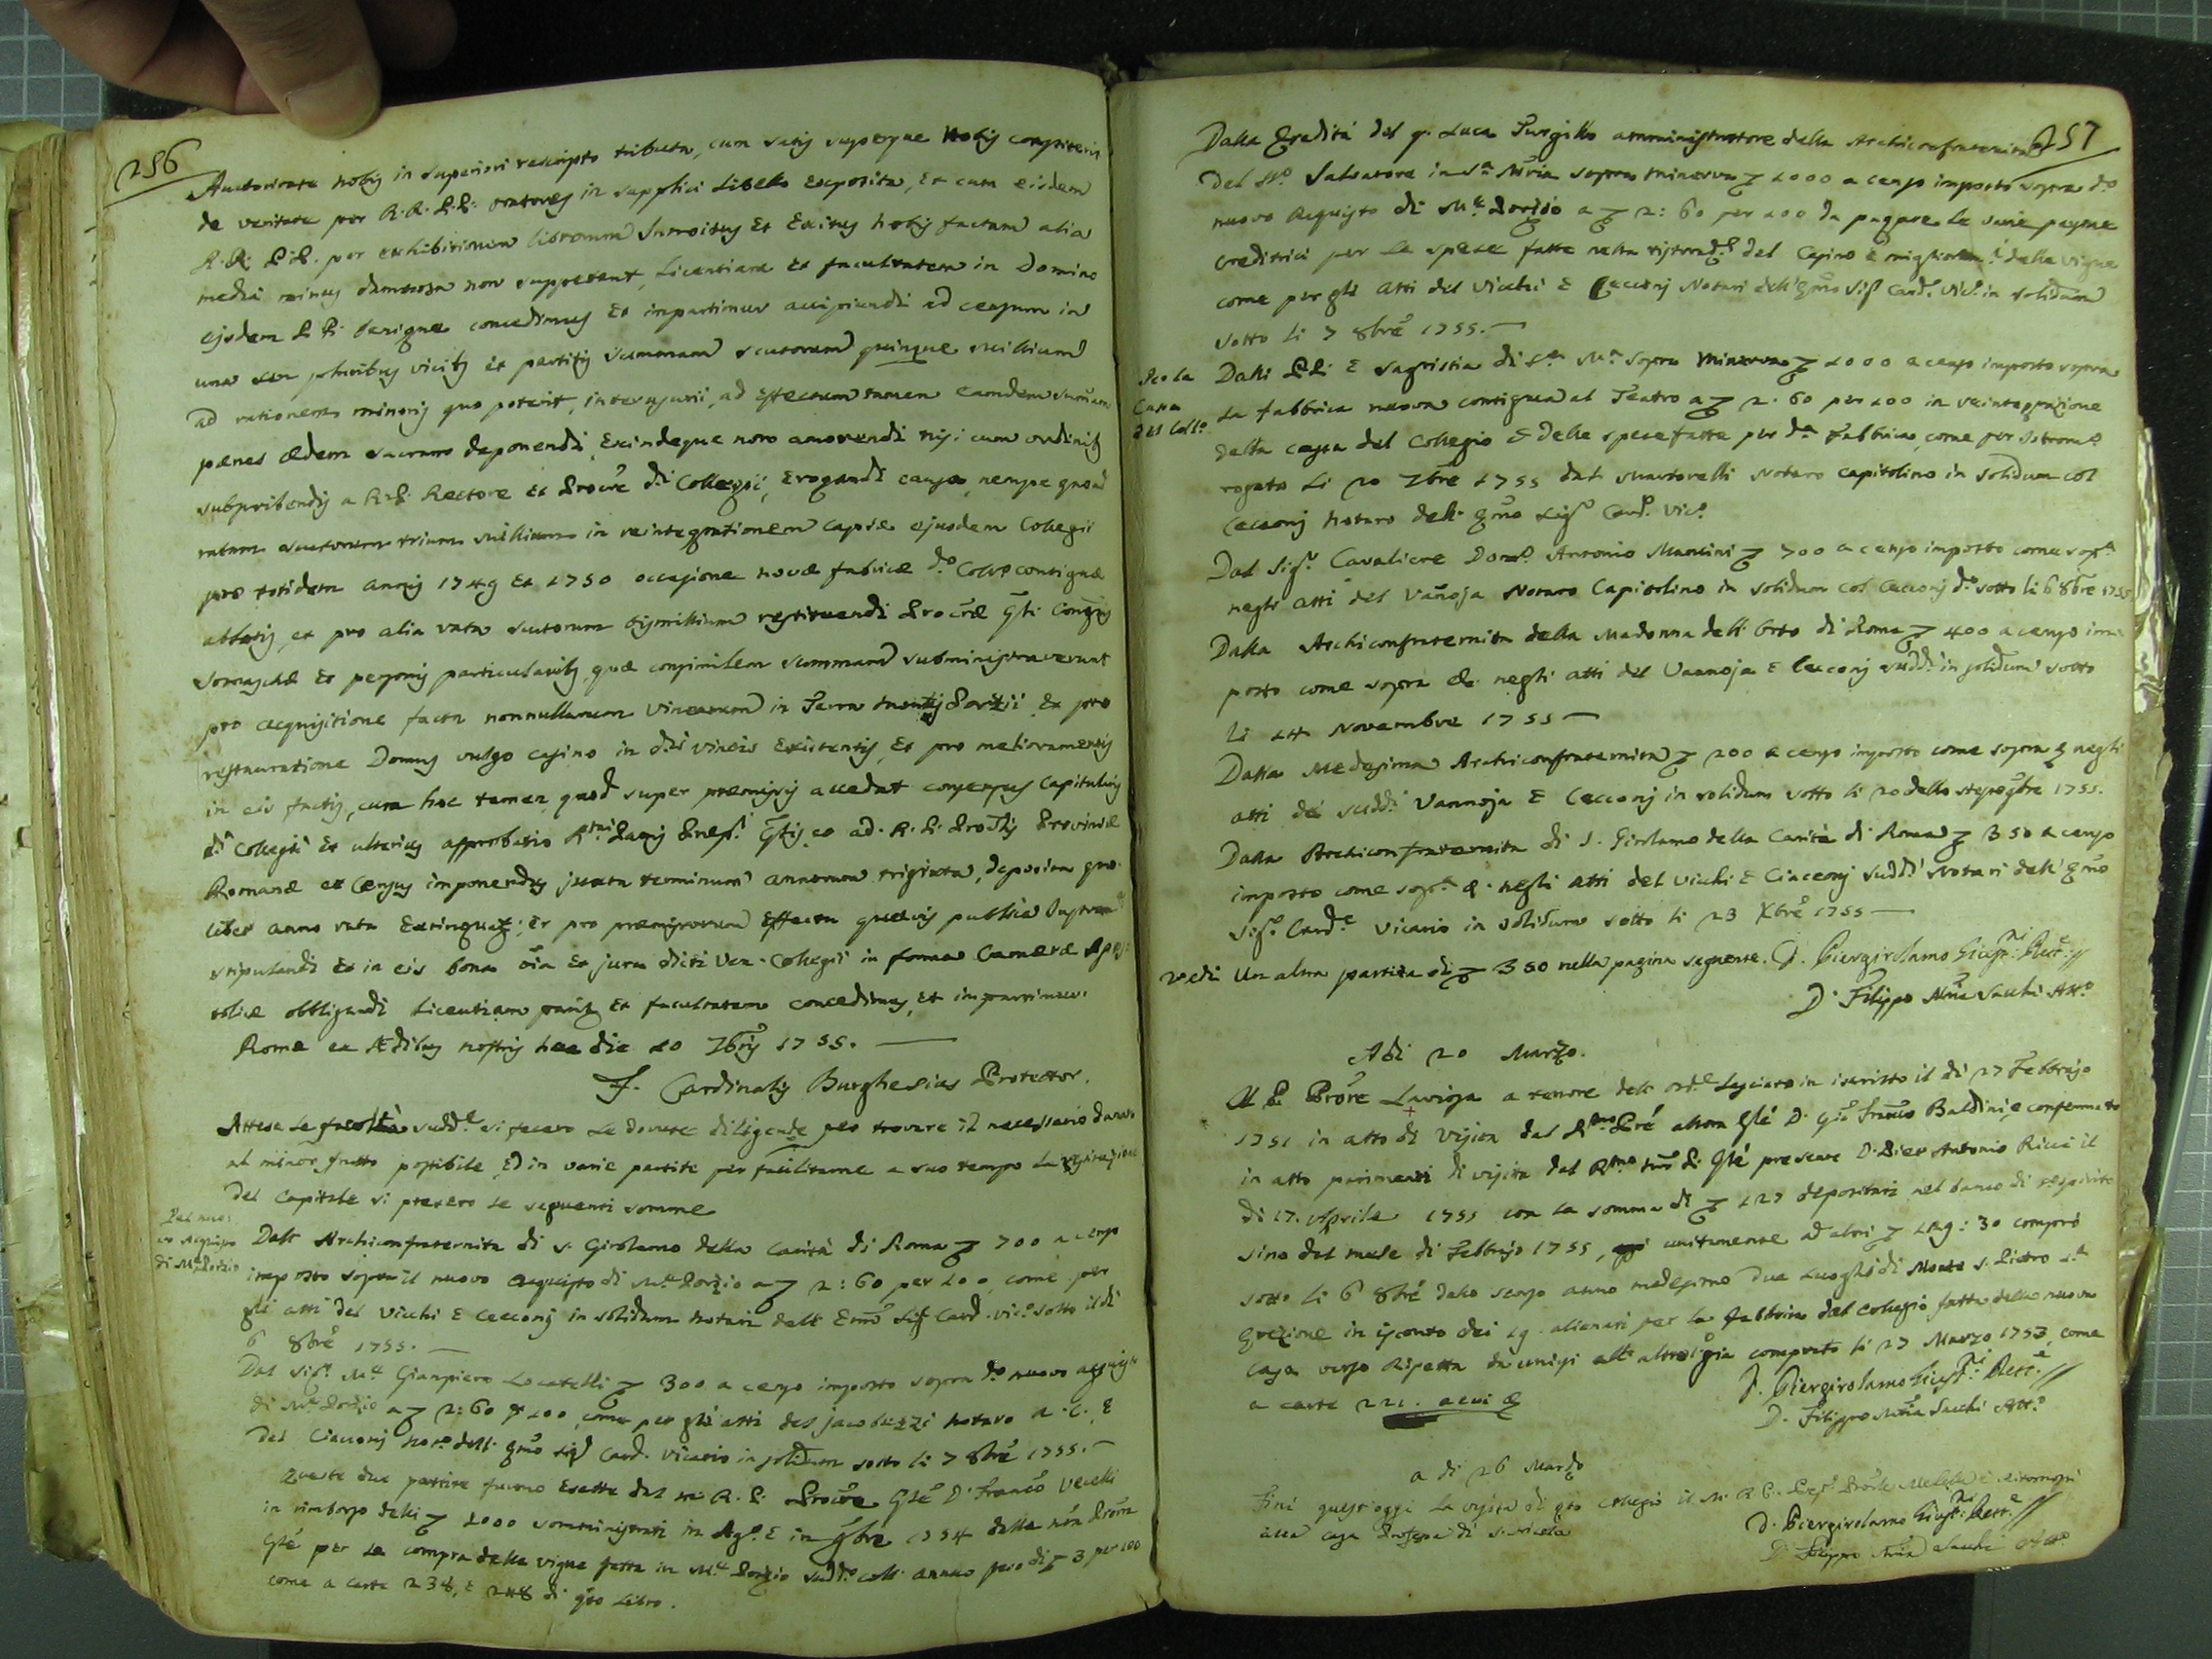 256
Auctoritate nobis in superiori rescripto tributa, cum satis superque nobis compiteris
de veritate per R. R. P.P. oratores in supplici Libello exposita, et cum eisdem
R. R. P.P. per exhibitionem librorum Introitus et Exitus nobis factam alia
media minus damnosa non suppetant, Licentiam et facultatem in Domino
ejsdem P P. benigne concedimus et impartimur accipiendi ad censum in
una seu pluribus vicibus et partitis summam scutorum quinque millium
ad rationem minoris quo poterit, interusurii, ad effectum tamen eamdem summam
pænes Ædem sacram deponendi, Exindeque non amovendi nisi cum ordinibus
subscribendis a R.P. Rectore et Procre di Collegii, Erogandi causa, nempe quoad
ratam scutorum trium millium in reintegrationem capsæ ejusdem Collegii
pro totidem annis 1749 et 1750 occasione novæ fabricæ do Collo contiguæ
ablatis, et pro alia rata scutorum bismillium restituendi Procræ Gnli Congnis
Somaschæ et personis particularibus, quæ consimilem summam subministraverunt
pro acquisitione facta nonnullarum vinearum in Terra Montis Portii, Et pro
restauratione Domus vulgo casino in dis vineis Existentis, Et pro melioramentis
in eis factis, cum hoc tamen quod super præmissis accedat consensus Capitularis
di Collegii et ulterius approbatio Rmi Patris Præpti Gnlis, et ad. R. P. Proalis Provinciæ
Romanæ et Census imponendus juxta terminum annorum triginta, depositu quo-
libet anno rata Extinguatur; et pro præmissorum effectu quævis publica Instrumta
stipulandi et in eis bona oia et jura dicti Ven. Collegii in forma Cameræ Apos-
tolicæ obbligandi Licentiam pariter et facultatem concedimus, et impartimur.
Romæ ex Ædibus nostris hac die 10 7bris 1755.
F. Cardinalis Burghesius Protector.
Attesa la facoltà sudde si fecero le dovute diligenze per trovare il necessario danaro
al minor frutto possibile, ed in varie partite per facilitarne a suo tempo la restituzione
del Capitale si presero le seguenti somme
Pel nuo-
vo Acquisto
di Me Porzio
Dall' Archiconfraternita di S. Girolamo della Carità di Roma 700 a censo
imposto sopra il nuovo acquisto di Me Porzio a 2:60 per 100, come per
gli atti del Vicchi e Cecconj in solidum notari dell' Emo Sig Card. Vico sotto il dì
6 8bre 1755.
Dal Sigr Me Gianpiero Locatelli 300 a censo imposto sopra do nuovo acquisto
di Me Porzio a 2:60 p 100, come per gli atti del Jacobuzzi notaro A. C. e
del Ciacconj noto dell' Emo Sigr Card. Vicario in solidum sotto li 7 8bre 1755.
Queste due partite furono Esatte dal m R. P. Procre Gle D. Franco Vecelli
in rimborso delli 1000 somministrati in Ago e in 9bre 1754 dalla nra Procra
Gle per la compra della vigna fatta in Me Porzio suddo coll' annuo peso di 3 per 100
come a carte 238, e 248 di qto Libro.
257
Dalla Eredità del q. Luca Turgillo amministratore della Archiconfraternita
del SSo Salvatore in Sta Mria sopra minerva 1000 a censo imposto sopra do
nuovo Acquisto di Me Porzio a 2:60 per 100 da pagare le varie persone
creditrici per le spese fatte nella ristorade del Casino e migliorame delle vigne
come per gli atti del Vicchi e Cecconj Notari dell'Emo Sigr Card. Vico in solidum
sotto li 7 8bre 1755.
Per la
Cassa
del Collo
Dalli PP. e sagristia di Sta Ma sopra Minerva 1000 a censo imposto sopra
la fabbrica nuova contigua al Teatro a 2.60 per 100 in reintegrazione
della cassa del Collegio e delle spese fatte per da Fabbrica, come per Istromo
rogato li 20 7bre 1755 dal Martorelli Notaro Capitolino in solidum col
Cecconj Notaro dell' Emo Sigr Card. Vico
Dal Sigr Cavaliere Domo Antonio Mancini 700 a censo imposto come sopra
negli atti del Vanoja Notaro Capitolino in solidum col Cecconj do sotto li 6 8bre 1755
Dalla Archiconfraternita della Madonna dell' Orto di Roma 400 a censo im-
posto come sopra &c negli atti del Vannoja e Cecconj suddi in solidum sotto
li 14 Novembre 1755
Dalla Medesima Archiconfraternita 200 a censo imposto come sopra & negli
atti dei suddi Vannoja e Cecconj in solidum sotto li 20 dello stesso 9bre 1755.
Dalla Archiconfraternita di S. Girolamo della Carità di Roma 350 a censo
imposto come sopra & negli atti del Vicchi e Ciacconj suddi Notari dell' Emo
Sigr Carde Vicario in solidum sotto li 23 Xbre 1755
Vedi un altra partita di 350 nella pagina seguente. D. Piergirolamo Giusni Rette
D. Filippo Mria Sacchi Atto
Adi 20 Marzo.
Il P. Prore Laviosa a tenore dell' orde lasciato in iscritto il dì 27 Febbrajo
1751 in atto di Visita dal Rmo Pre allora Gle D. Gio Franco Baldini, e confermato
in atto parimenti di visita dal Rmo nro P. Gle presente D. Pier Antonio Ricci il
dì 17. Aprile 1755 con la somma di 127 depositati nel banco di S. Spirito
sino dal mese di Febbrajo 1755, unitamente ad altri 109:30 comprò
sotto li 6 8bre dello stesso anno medesimo due Luoghi di Monte S. Pietro 1a
Erezione in isconto dei 19. alienati per la fabbrica del Collegio fatta della nuova
Casa verso Ripetta da unirsi all' altro già comprato li 27 Marzo 1753, come
a carte 221. a cui &
P. Piergirolamo Giusni Rette
D. Filippo Mria Sacchi Atto
a di 26 Marzo
Finì quest'oggi la visita di qto collegio il M. R. P. Prople Melella e ritornossi
alla casa Professa di S. Nicola
D. Piergirolamo Giusni Rette
D. Filippo Mria Sacchi Atto